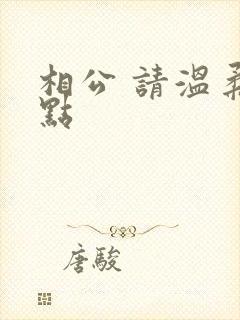 相公 請溫柔
點
唐駿